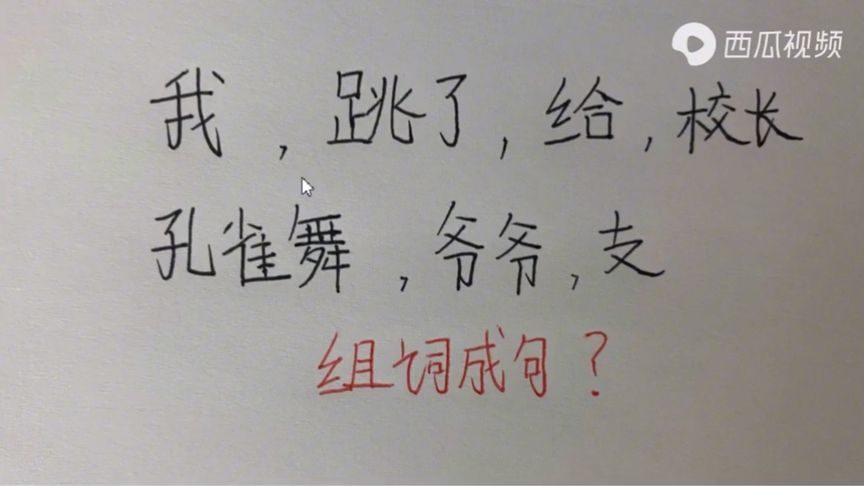 西瓜视频
我，跳了，给，校长
孔雀舞，爷爷，支
组词成句？